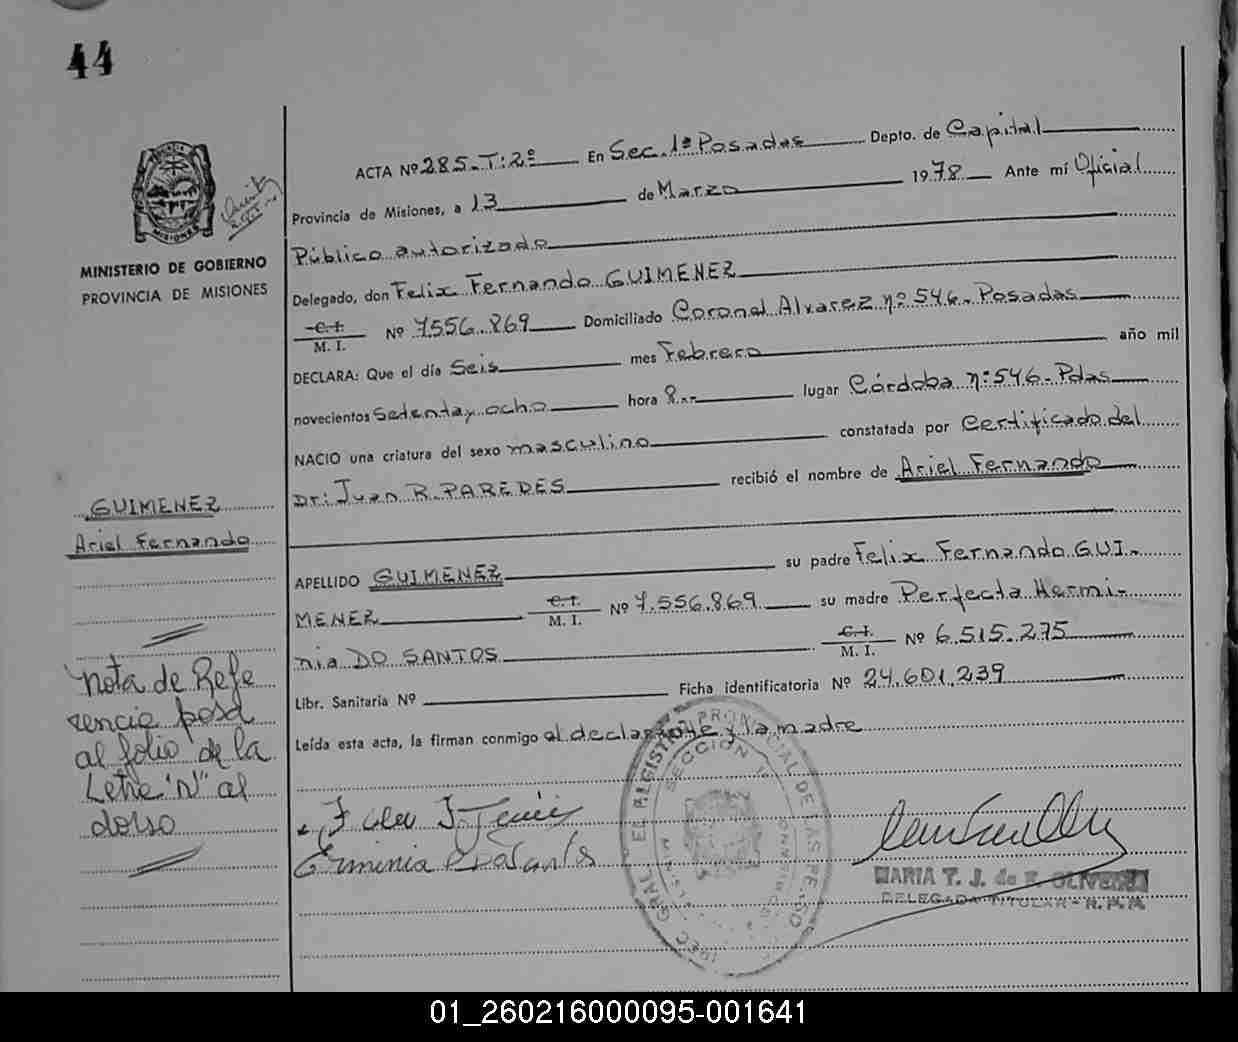 44
ACTA Nº 285-T:2º En Sec. 1ª Posadas Depto. de Capital
Provincia de Misiones, a 13 de Marzo 1978 Ante mí Oficial
Público autorizado
MINISTERIO DE GOBIERNO
PROVINCIA DE MISIONES
Delegado, don Felix Fernando GUIMENEZ
C.I. M. I. Nº 7.556.869 Domiciliado Coronel Alvarez nº 546. Posadas
DECLARA: Que el día Seis mes Febrero año mil
novecientos Setenta y ocho hora 8.-- lugar Córdoba nº 546- Pdas
NACIO una criatura del sexo masculino constatada por Certificado del
Dr: Juan R. PAREDES recibió el nombre de Ariel Fernando
GUIMENEZ
Ariel Fernando
APELLIDO GUIMENEZ su padre Felix Fernando GUI-
MENEZ C.I. M. I. Nº 7.556.869 su madre Perfecta Hermi-
nia DO SANTOS C.I. M. I. Nº 6.515.275
Libr. Sanitaria Nº Ficha identificatoria Nº 24.601.239
Leída esta acta, la firman conmigo el declarante y la madre
Nota de Refe
rencia pasa
al folio de la
Letra "N" al
dorso
MARIA T. J. de OLIVERA
DELEGADA TITULAR - R.P.P.
SECCION 1ª
01_260216000095-001641